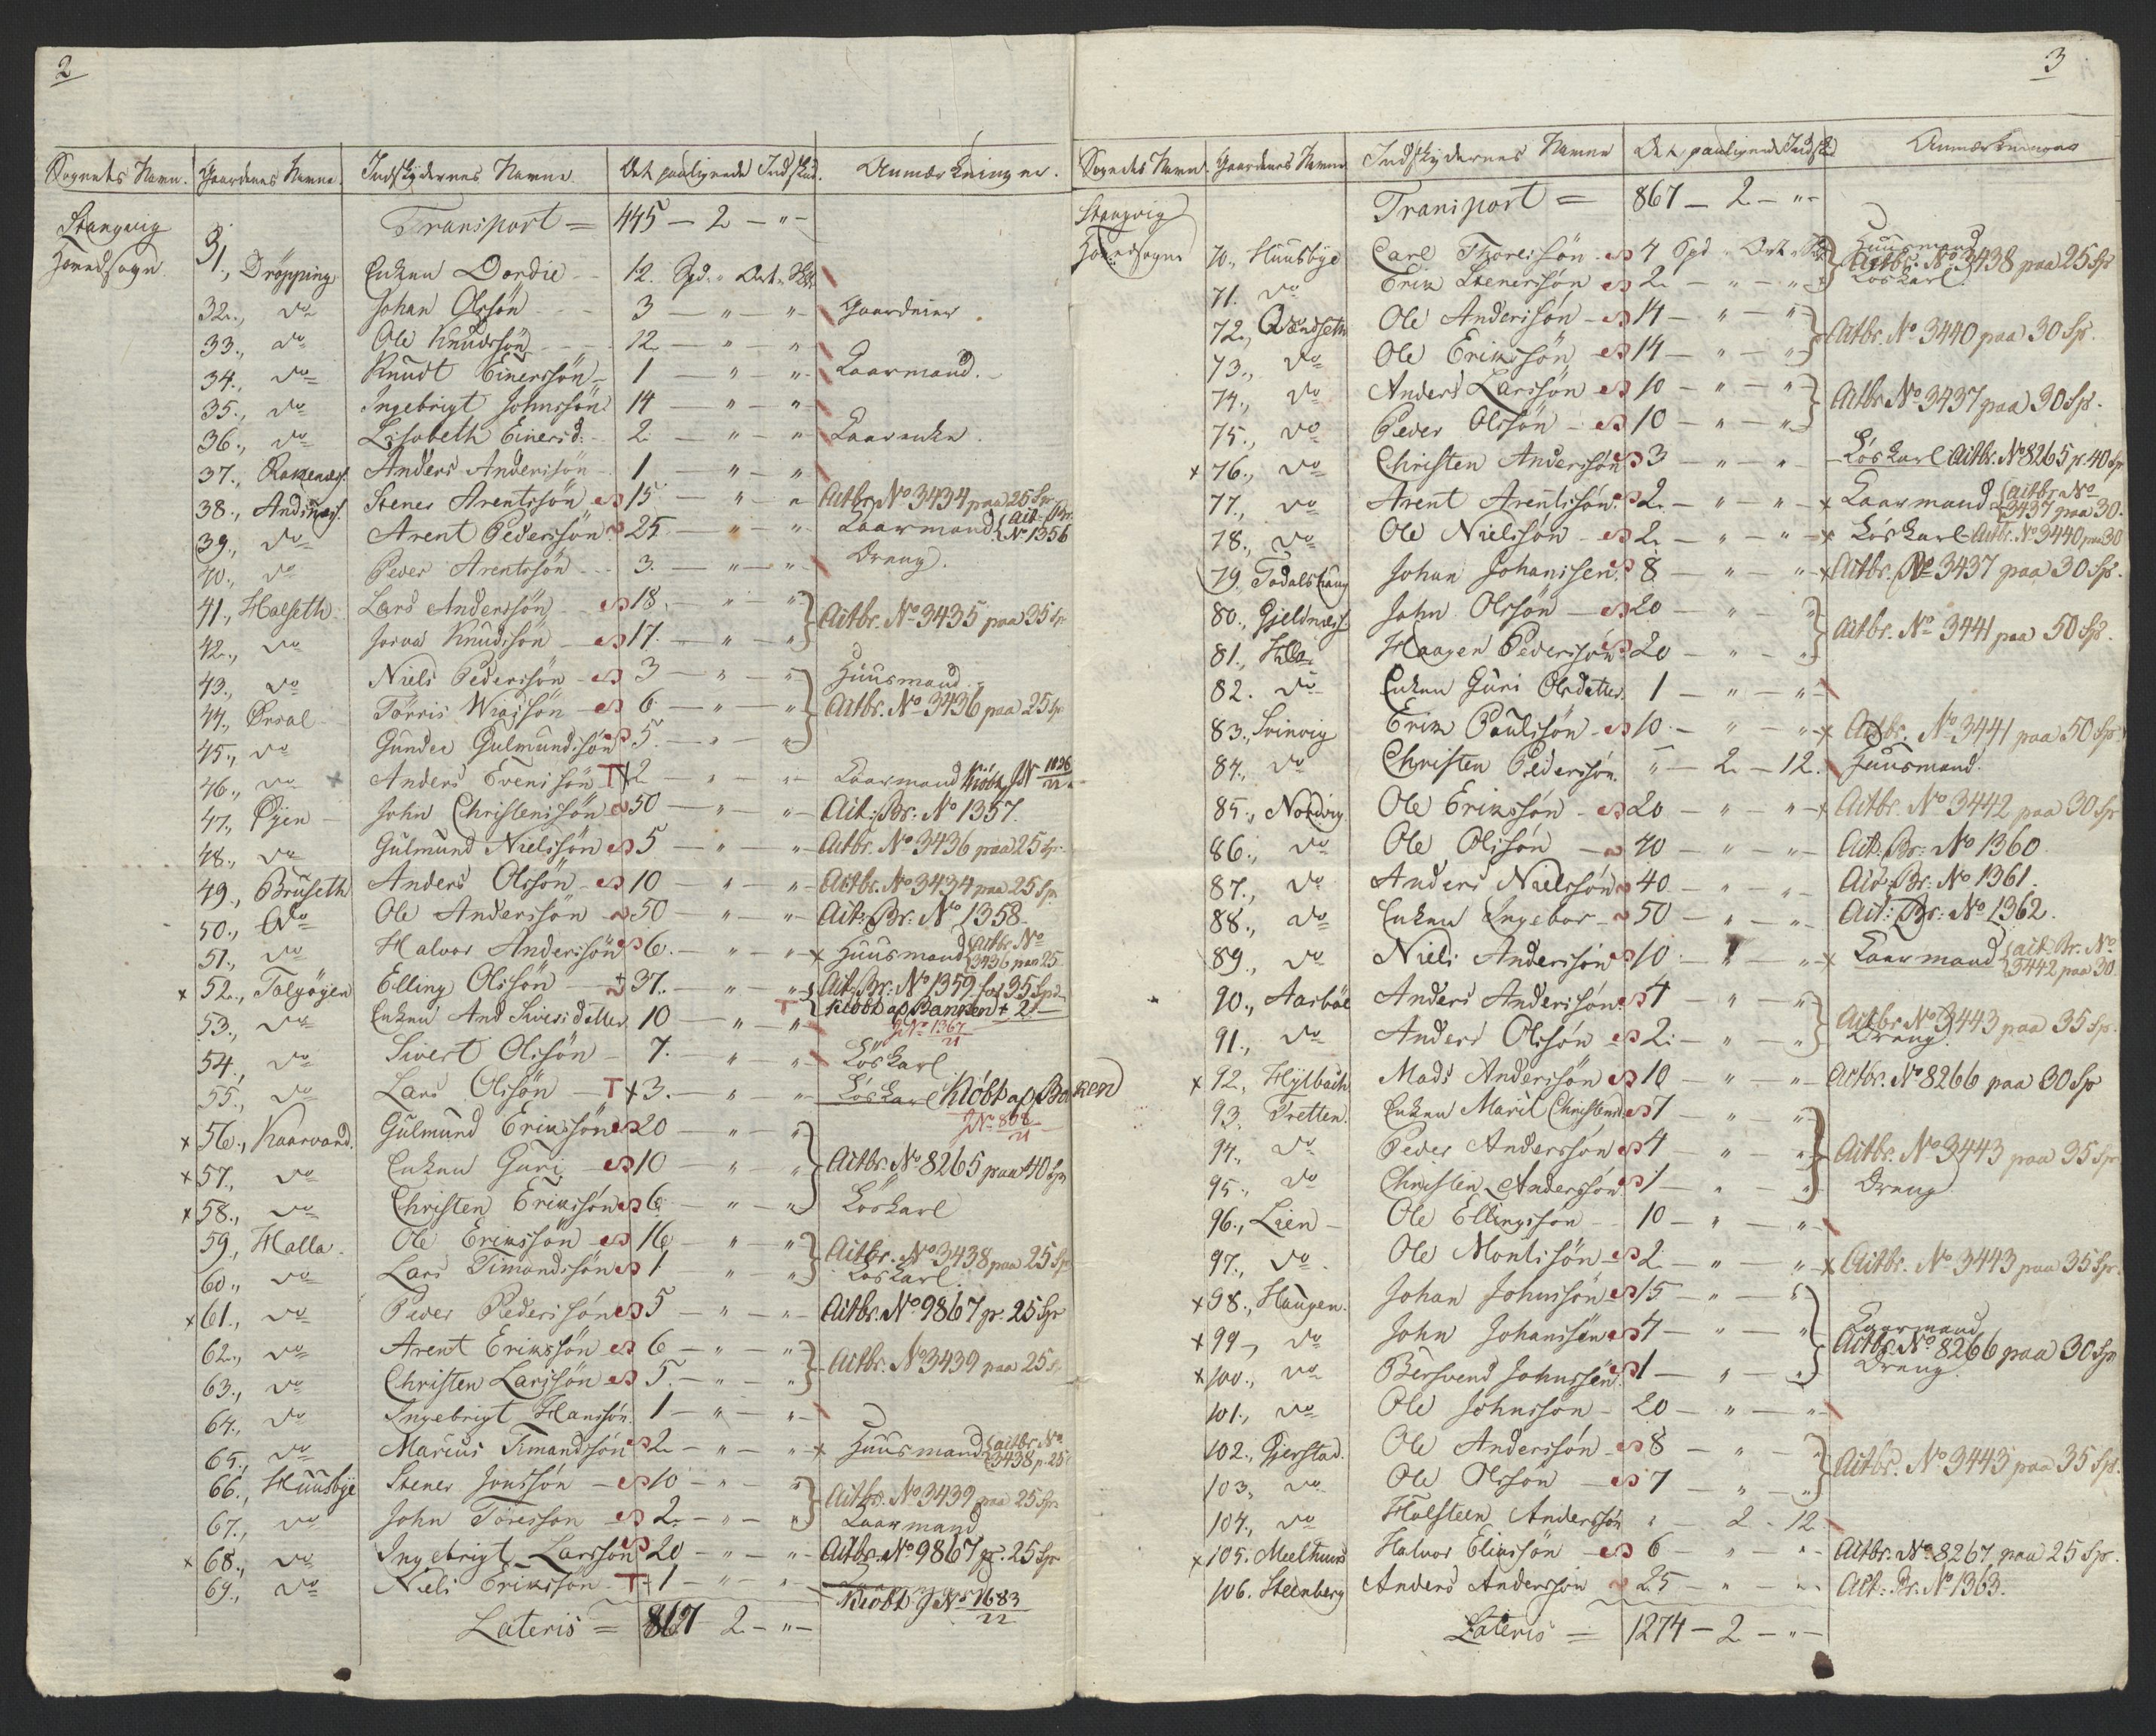 2
Sognets Navn. Gaardenes Navne. Indskydernes Navne Det paalignede Indskud. Anmærkninger.
Stangvig Transport = 445 – 2 – " –
Hovedsogn. 31., Dröpping Enken Dordie 12. Spd. " Ort " Sk.
32., do Johan Olssön 3 – " – " – Gaardeier
33., do Ole Knudssön 12 – " – "
34., do Knudt Einerssön 1 – " – " Kaarmand.
35., do Ingebrigt Johnssön 14 – " – "
36., do Lisabeth Einersd: 2 – " – " Kaarenke.
37., Anders Anderssön 1 – " – "
38., Andinæs. Stener Arentssön 15 – " – " Actbr. No 3434 paa 25 Sp.
39., do Arent Pederssön 25 – " – " Kaarmand { Act. Br. No 1356
40., do Peder Arentssön 3 – " – " Dreng.
41., Halseth Lars Anderssön 18 – " – " } Actbr. No 3435 paa 35 Sp
42., do Knudssön 17 – " – "
43., do Niels Pederssön 3 – " – " Huusmand.
44., Ørsal Törris 6 – " – " } Actbr. No 3436 paa 25 Sp
45., do Gunder Gulmundssön 5 – " – "
46., do Anders Evenssön T+2 – " – " Kaarmand kiöbt JN 1036/22
47., Øyen John Christenssön 50 – " – " Act: Br: No 1357.
48., do Gulmund Nielssön 5 – " – " Actbr. No 3436 paa 25 Sp.
49., Bruseth Anders Olssön 10 – " – " Actbr. No 3434 paa 25 Sp
50., do Ole Anderssön 50 – " – " Act: Br: No 1358.
51., do Halvor Anderssön 6 – " – " x Huusmand { Actbr. No 3436 paa 25
x 52., Talgöyen Elling Olssön + 37. – " – " { Act: Br: No 1359 for 35 Spd
53., do Enken And Siversdatter 10 – " – " T kiöbt af Banken + 2 –
JNo 1367/21
54., do Sivert Olssön 7. – " – " Löskarl
55., do Lars Olssön T+3. – " – " Löskarl Kiöbt af Banken
JNo 808/21
x 56., Kaarvand. Gulmund Erikssön 20 – " – "
x 57., do Enken Guri 10 – " – " } Actbr. No 8265 paa 40 Sp
x 58., do Christen Erikssön 6 – " – " Löskarl
59., Halla. Ole Erikssön 16 – " – " } Actbr. No 3438 paa 25 Sp
60., do Lars Timandssön 1 – " – " Löskarl
x 61., do Peder Pederssön 5 – " – " Actbr. No 9867 p. 25 Sp
62., do Arent Erikssön 6 – " – " } Actbr. No 3439 paa 25
63., do Christen Larssön 5. – " – "
64., do Ingebrigt Hanssön 1 – " – "
65., do Marius Timandssön 2 – " – " x Huusmand { actbr. No 3438 p. 25
66., Huusbye Stener Jonssön 10 – " – " } Actbr. No 3439 paa 25 Sp.
67., do John Toressön 2 – " – " Kaarmand
x 68., do Ingebrigt Larssön 20 – " – " Actbr. No 9867 p. 25 Sp
69., do Niels Erikssön T+1 – " – " Kiöbt JNo 1683/22
Lateris = 867 2 – " –
3
Sognets Navn. Gaardenes Navne Indskydernes Navne Det paalignede Indskud Anmærkninger
Stangvig Transport = 867 – 2 – " –
Hovedsogn 70., Huusbye Carl Thoressön 4 Spd " Ort " Sk. Huusmand
} Actbr. No 3438 paa 25 Sp
71. do Erik Stenerssön 2 – " – " Löskarl.
72., Qvandseth Ole Anderssön 14 – " – " } Actbr. No 3440 paa 30 Sp.
73., do Ole Erikssön 14 – " – "
74., do Anders Larssön 10 – " – " } Actbr No 3437 paa 30 Sp.
75., do Peder Olssön 10 – " – "
x 76., do Christen Anderssön 3 – " – " Löskarl Actbr. No 8265 p. 40 Sp
77., do Arent Arentssön 2. – " – " x Kaarmand { actbr No 3437 paa 30.
78., do Ole Nielssön 2. – " – " x Löskarl Actbr. No 3440 paa 30
79. Todalshaug Johan Johanssen. 8 – " – " x Actbr. No 3437 paa 30 Sp.
80., Gjeldnæss. John Olssön 20 – " – " } Actbr. No 3441 paa 50 Sp.
81., Haagen Pederssön 20 – " – "
82. do Enken Guri Olsdatter 1 – " – "
83., Svinvig Erik Paulssön 10. – " – " x Actbr. No 3441 paa 50 Sp.
84., do Christen Pederssön. " – 2 – 12. Huusmand.
85., Nordvig. Ole Erikssön 20 – " – " x Actbr. No 3442 paa 30 Sp
86., do Ole Olssön 40 – " – " Act: Br: No 1360
87., do Anders Nielssön 40 – " – " Act: Br: No 1361.
88., do Enken Ingebor 50 – " – " Act: Br: No 1362.
89., do Niels Anderssön 10 – " – " x Kaarmand { act. Br. No 3442 paa 30
90., Aasböe Anders Anderssön 4 – " – " } Actbr No 3443 paa 35 Sp.
91., do Anders Olssön 2: – " – " Dreng.
x 92., Hylbach Mads Anderssön 10 – " – " Actbr. No 8266 paa 30 Sp
93. Tretten. Enken Marit Christens 7 – " – "
94., do Peder Anderssön 4 – " – " } Actbr. No 3443 paa 35 Sp.
95., do Christen Anderssön 1 – " – " Dreng
96., Lien Ole Ellingssön 10 – " – "
97., do Ole Montssön 2 – " – " x Actbr. No 3443 paa 35 Sp.
x 98., Haugen. Johan Johnssön 15 – " – "
x 99., do John Johanssön 4 – " – " } Kaarmand
Actbr. No 8266 paa 30 Sp
x 100., do Bersvend Johnssön. 1 – " – " Dreng.
101., do Ole Johnssön 20 – " – "
102., Gjerstad. Ole Anderssön 8 – " – " } Actbr. No 3443 paa 35 Sp.
103., do Ole Olssön 7 – " – "
104., do Halsteen Anderssön " – 2 – 12.
x 105. Meelhuus Halvor Eliassön 6 – " – " Actbr. No 8267 paa 25 Sp.
106. Steenberg Anders Anderssön 25 – " – " Act: Br. No 1363.
Lateris = 1274 – 2 – " –